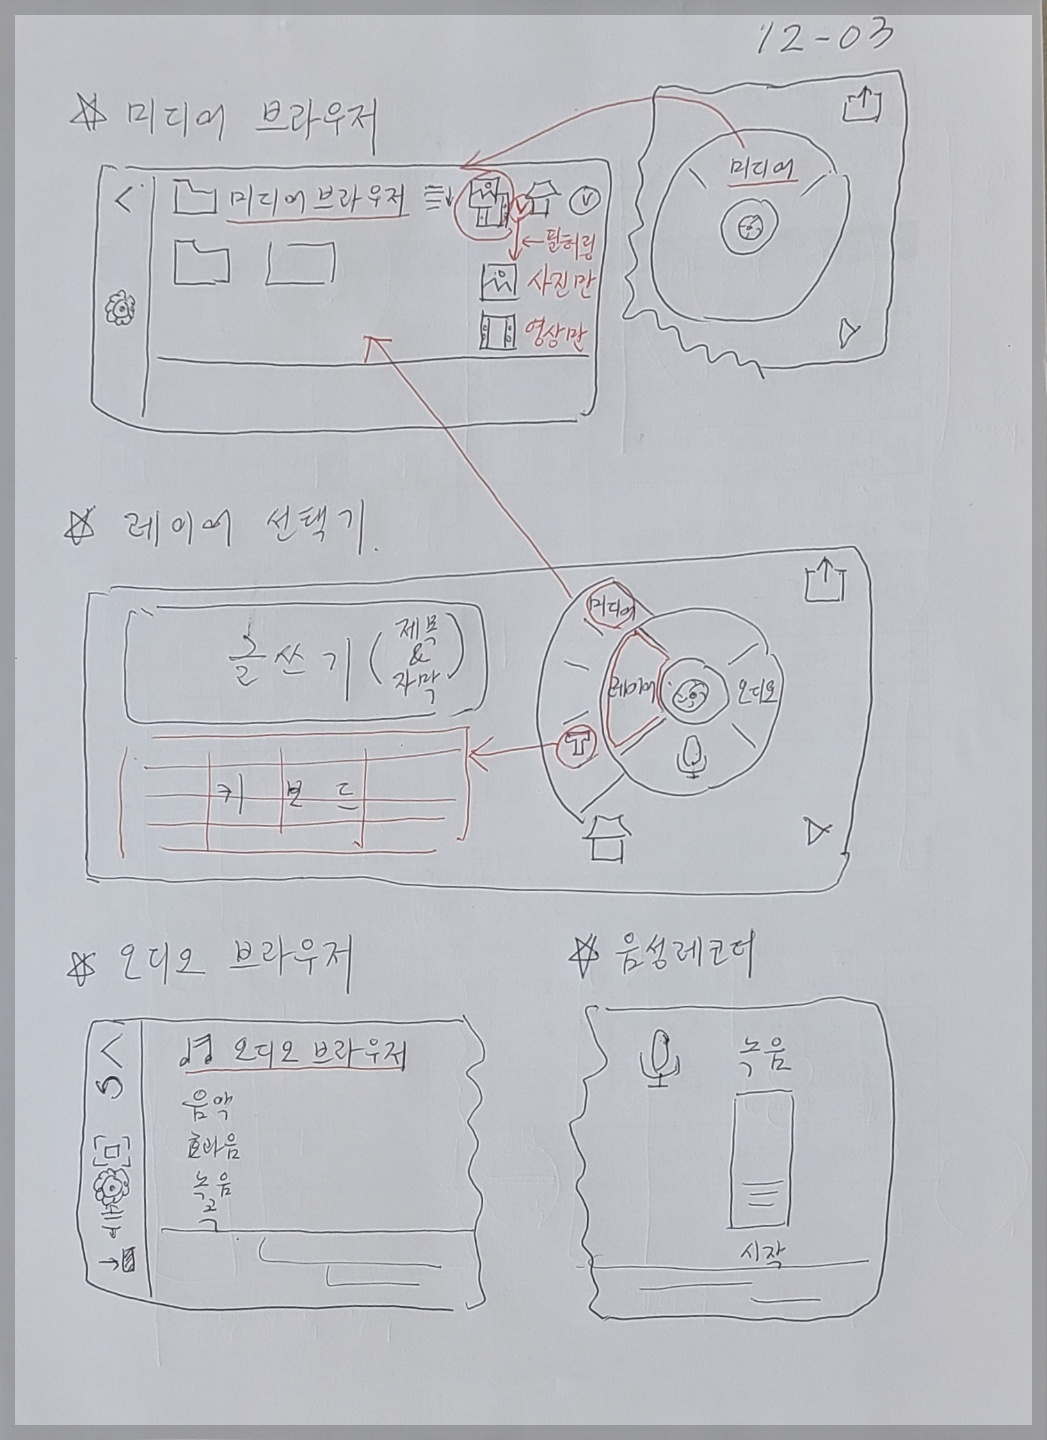 12-03
☆ 미디어 브라우저
미디어
미디어 브라우저
←필터링
사진만
영상만
☆ 레이어 선택기.
글쓰기 (제목
&
자막)
미디어
레이어
오디오
T
키보드
☆ 오디오 브라우저
☆ 음성레코더
오디오 브라우저
음악
효과음
녹음
곡
녹음
시작